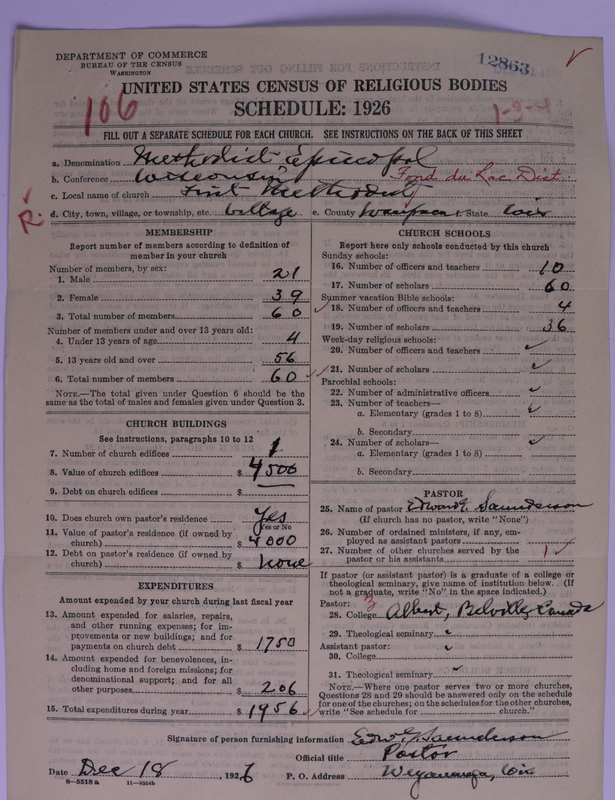 DEPARTMENT OF COMMERCE
BUREAU OF THE CENSUS
WASHINGTON
12863
106
1-9-4
UNITED STATES CENSUS OF RELIGIOUS BODIES
SCHEDULE: 1926
FILL OUT A SEPARATE SCHEDULE FOR EACH CHURCH. SEE INSTRUCTIONS ON THE BACK OF THIS SHEET
a. Denomination Methodist Episcopal
b. Conference Wisconsin Fond du Lac Dist.
c. Local name of church First Methodist
R.
d. City, town, village, or township, etc. Village e. County Waupaca f. State Wis
MEMBERSHIP
Report number of members according to definition of
member in your church
Number of members, by sex:
1. Male 21
2. Female 39
3. Total number of members 60
Number of members under and over 13 years old:
4. Under 13 years of age 4
5. 13 years old and over 56
6. Total number of members 60
NOTE.—The total given under Question 6 should be the
same as the total of males and females given under Question 3.
CHURCH BUILDINGS
See instructions, paragraphs 10 to 12
7. Number of church edifices 1
8. Value of church edifices $ 4500
9. Debt on church edifices $
10. Does church own pastor's residence Yes
Yes or No
11. Value of pastor's residence (if owned by
church) $ 4000
12. Debt on pastor's residence (if owned by
church) $ none
EXPENDITURES
Amount expended by your church during last fiscal year
13. Amount expended for salaries, repairs,
and other running expenses; for im-
provements or new buildings; and for
payments on church debt $ 1750
14. Amount expended for benevolences, in-
cluding home and foreign missions; for
denominational support; and for all
other purposes $ 206
15. Total expenditures during year $ 1956
CHURCH SCHOOLS
Report here only schools conducted by this church
Sunday schools:
16. Number of officers and teachers 10
17. Number of scholars 60
Summer vacation Bible schools:
18. Number of officers and teachers 4
19. Number of scholars 36
Week-day religious schools:
20. Number of officers and teachers
21. Number of scholars
Parochial schools:
22. Number of administrative officers
23. Number of teachers—
a. Elementary (grades 1 to 8)
b. Secondary
24. Number of scholars—
a. Elementary (grades 1 to 8)
b. Secondary
PASTOR
25. Name of pastor Saunderson
(If church has no pastor, write "None")
26. Number of ordained ministers, if any, em-
ployed as assistant pastors
27. Number of other churches served by the
pastor or his assistants 1
If pastor (or assistant pastor) is a graduate of a college or
theological seminary, give name of institution below. (If
not a graduate, write "No" in the space indicated.)
Pastor:
28. College Albert, Belville Canada
29. Theological seminary
Assistant pastor:
30. College
31. Theological seminary
NOTE.—Where one pastor serves two or more churches,
Questions 28 and 29 should be answered only on the schedule
for one of the churches; on the schedules for the other churches,
write "See schedule for church."
Signature of person furnishing information Saunderson
Official title Pastor
Date Dec 18, 1926 P. O. Address Weyauwega, Wis
8—5518 a 11—9204b